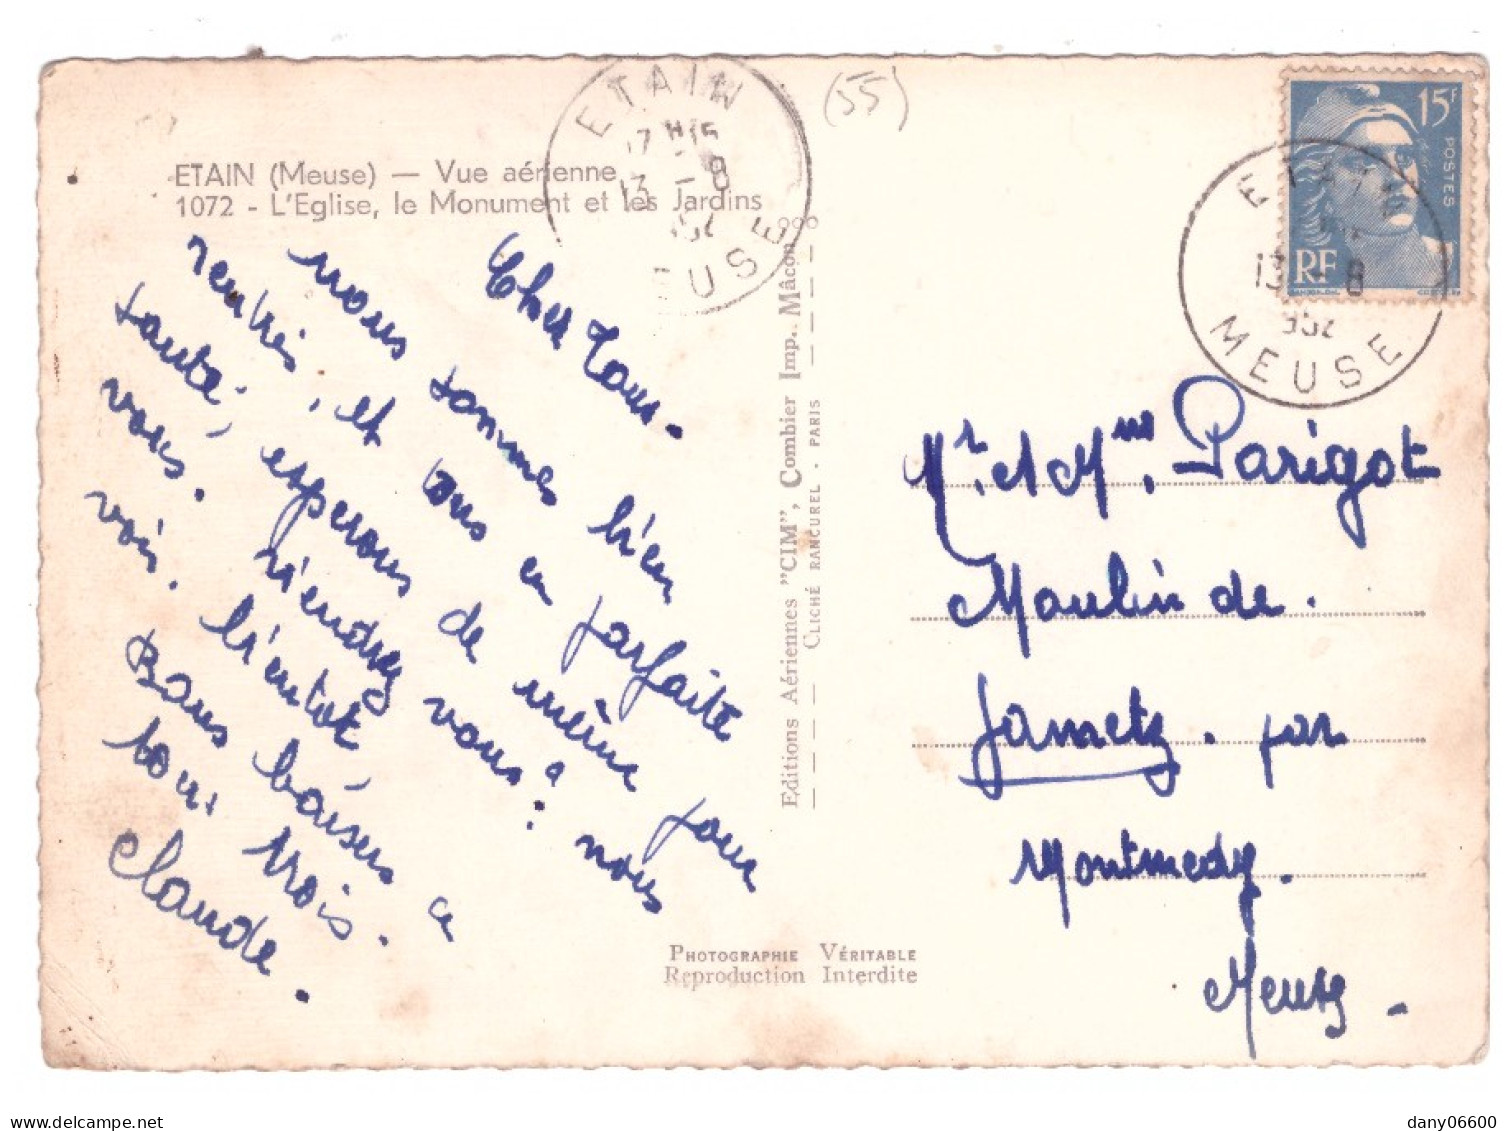 ETAIN (Meuse) — Vue aérienne
1072 - L'Eglise, le Monument et les Jardins
ETAIN
17 H 15
13 - 8
MEUSE
(55)
15F
POSTES
RF
ETAIN
13 - 8
952
MEUSE
Chers Tous.
nous sommes bien
rentrés, et tous en parfaite
santé, esperons de même pour
vous. viendrez vous? nous
voir. bientôt,
Bons baisers a
tous trois.
Claude.
Editions Aériennes "CIM", Combier Imp. Mâcon
CLICHÉ RANCUREL . PARIS
PHOTOGRAPHIE VÉRITABLE
Reproduction Interdite
Mr. & Mme. Parigot
Moulin de.
Jametz. par
Montmedy.
Meuse.
delcampe.net
dany06600